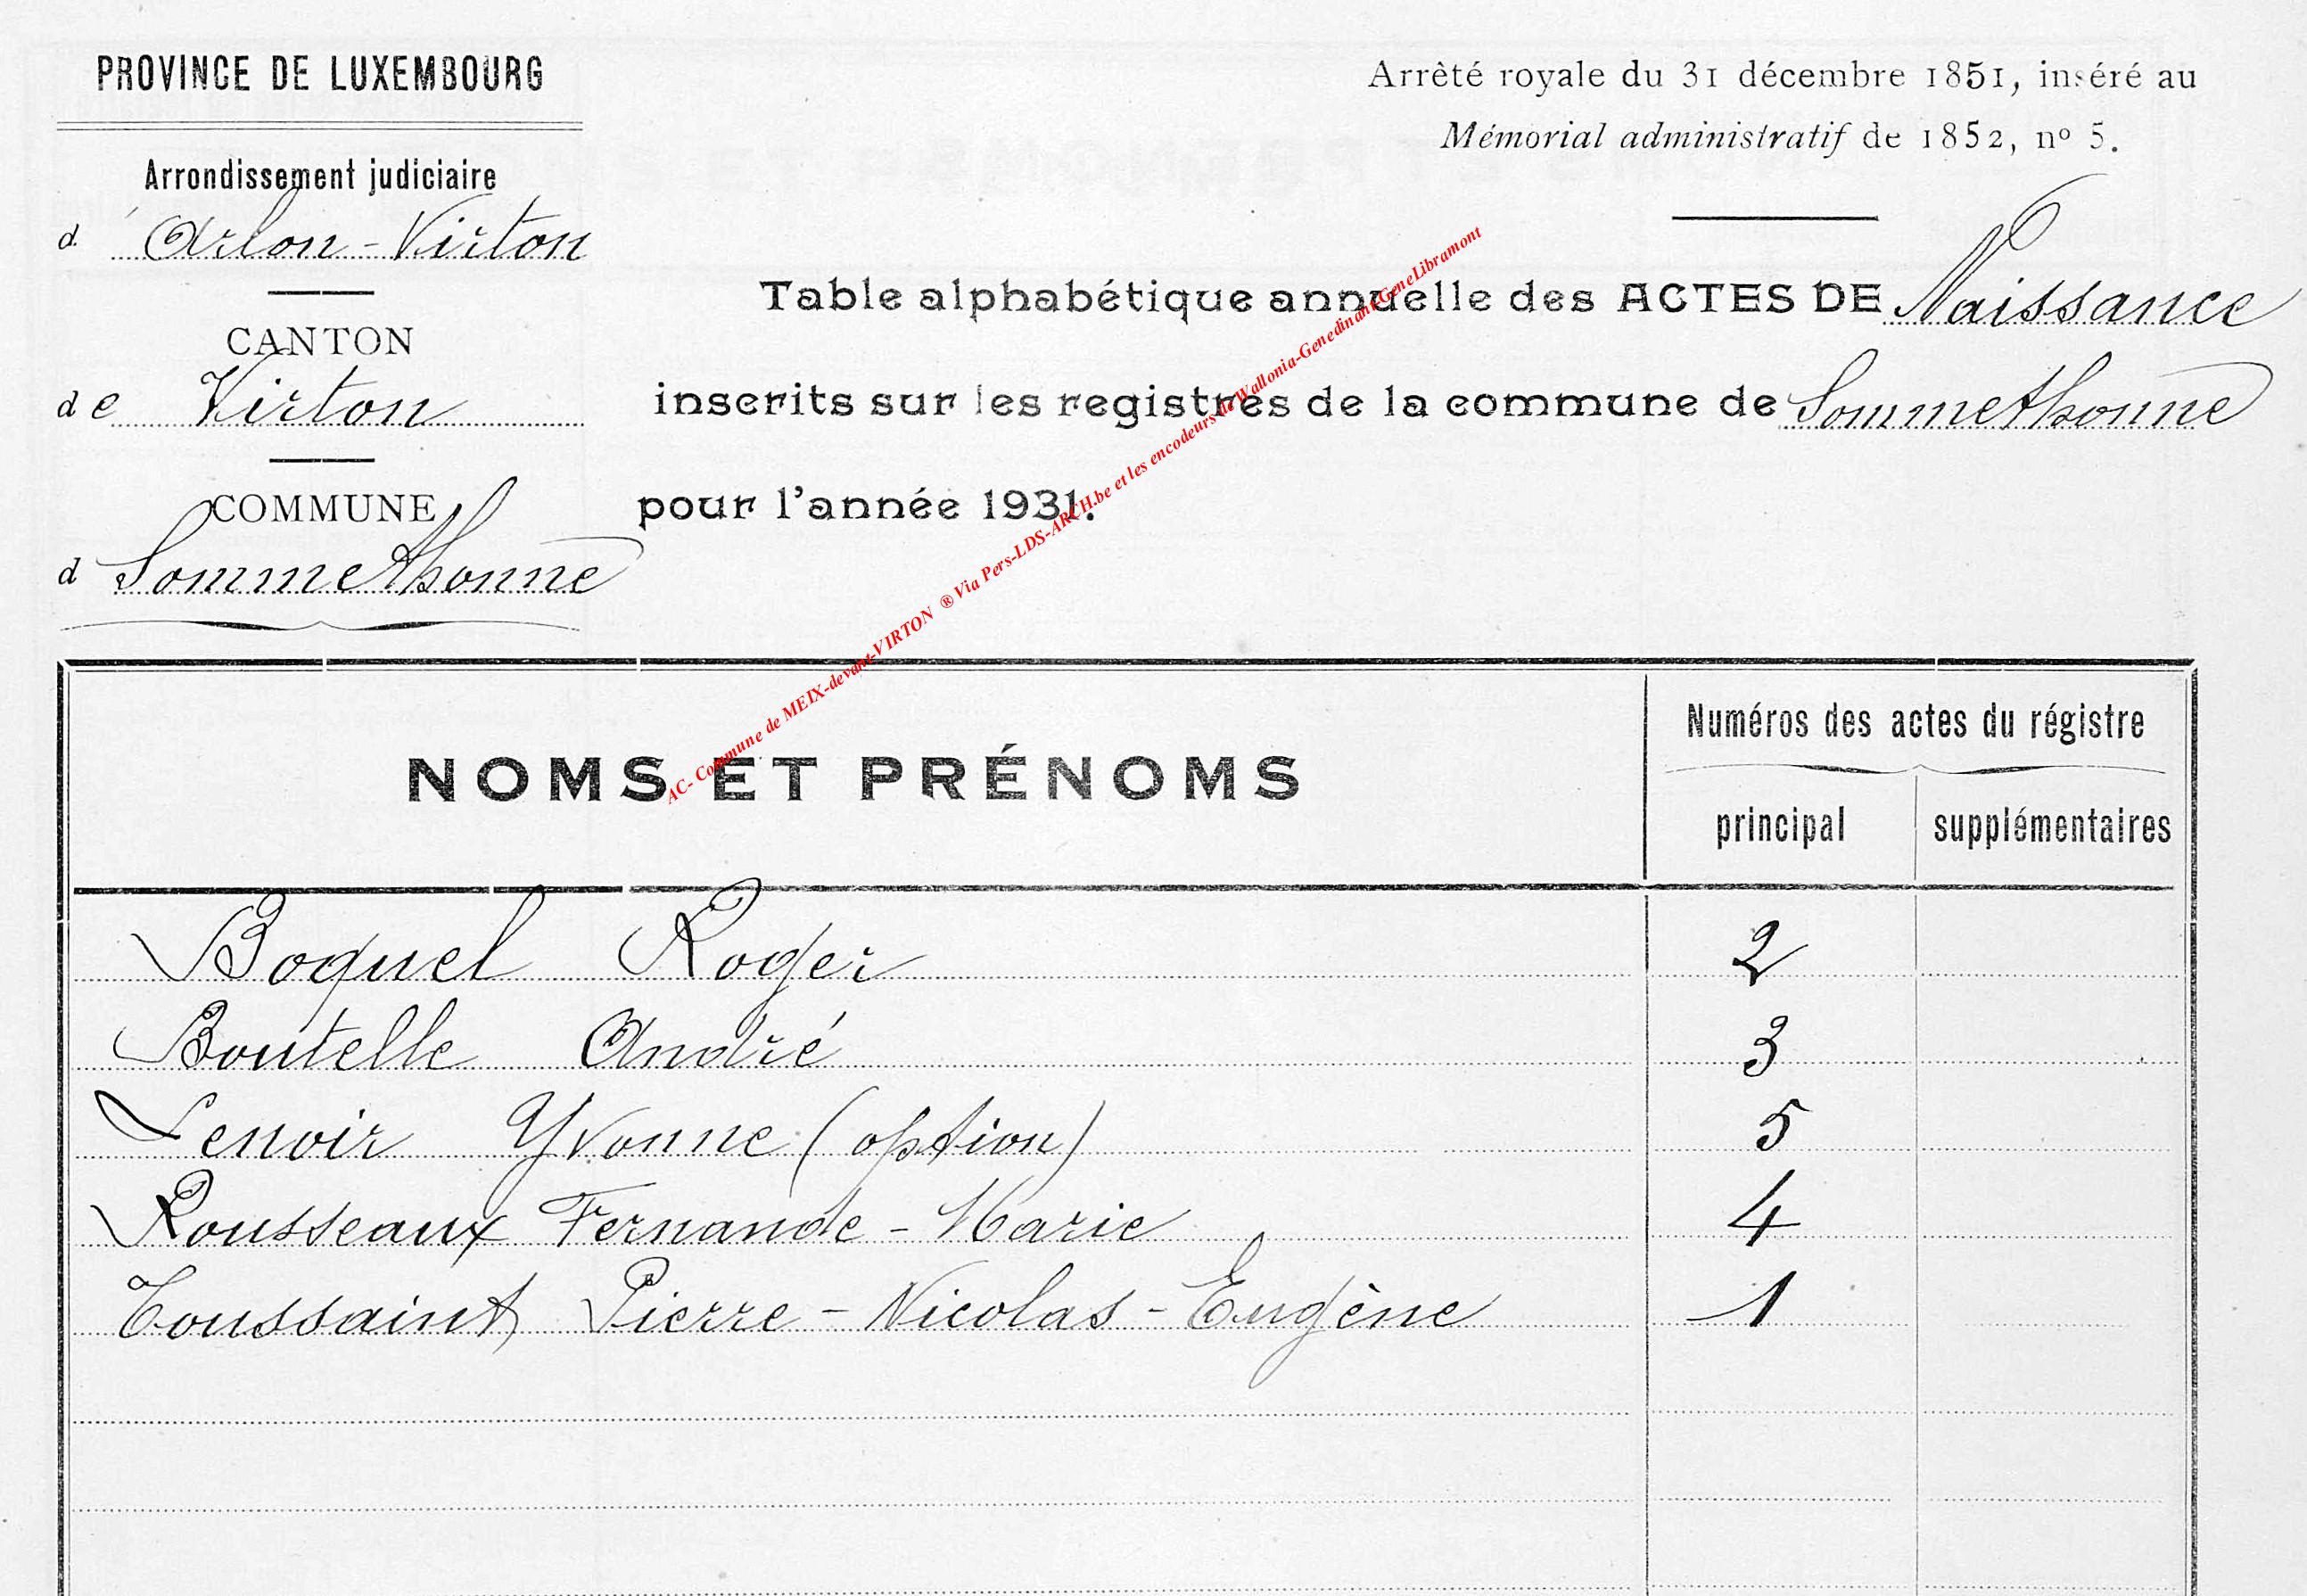 PROVINCE DE LUXEMBOURG
Arrondissement judiciaire
d' Arlon-Virton
CANTON
de Virton
COMMUNE
d Sommethonne
Arrêté royale du 31 décembre 1851, inséré au
Mémorial administratif de 1852, nº 5.
Table alphabétique annuelle des ACTES DE Naissance
inscrits sur les registres de la commune de Sommethonne
pour l'année 1931.
AC- Commune de MEIX-devant-VIRTON ® Via Pers-LDS-ARCH.be et les encodeurs de Wallonia-Genedinant-GeneLibramont
NOMS ET PRÉNOMS
Numéros des actes du régistre
principal supplémentaires
Boquel Roger 2
Boutelle André 3
Lenoir Yvonne (option) 5
Rousseaux Fernande - Marie 4
Toussaint Pierre - Nicolas - Eugène 1